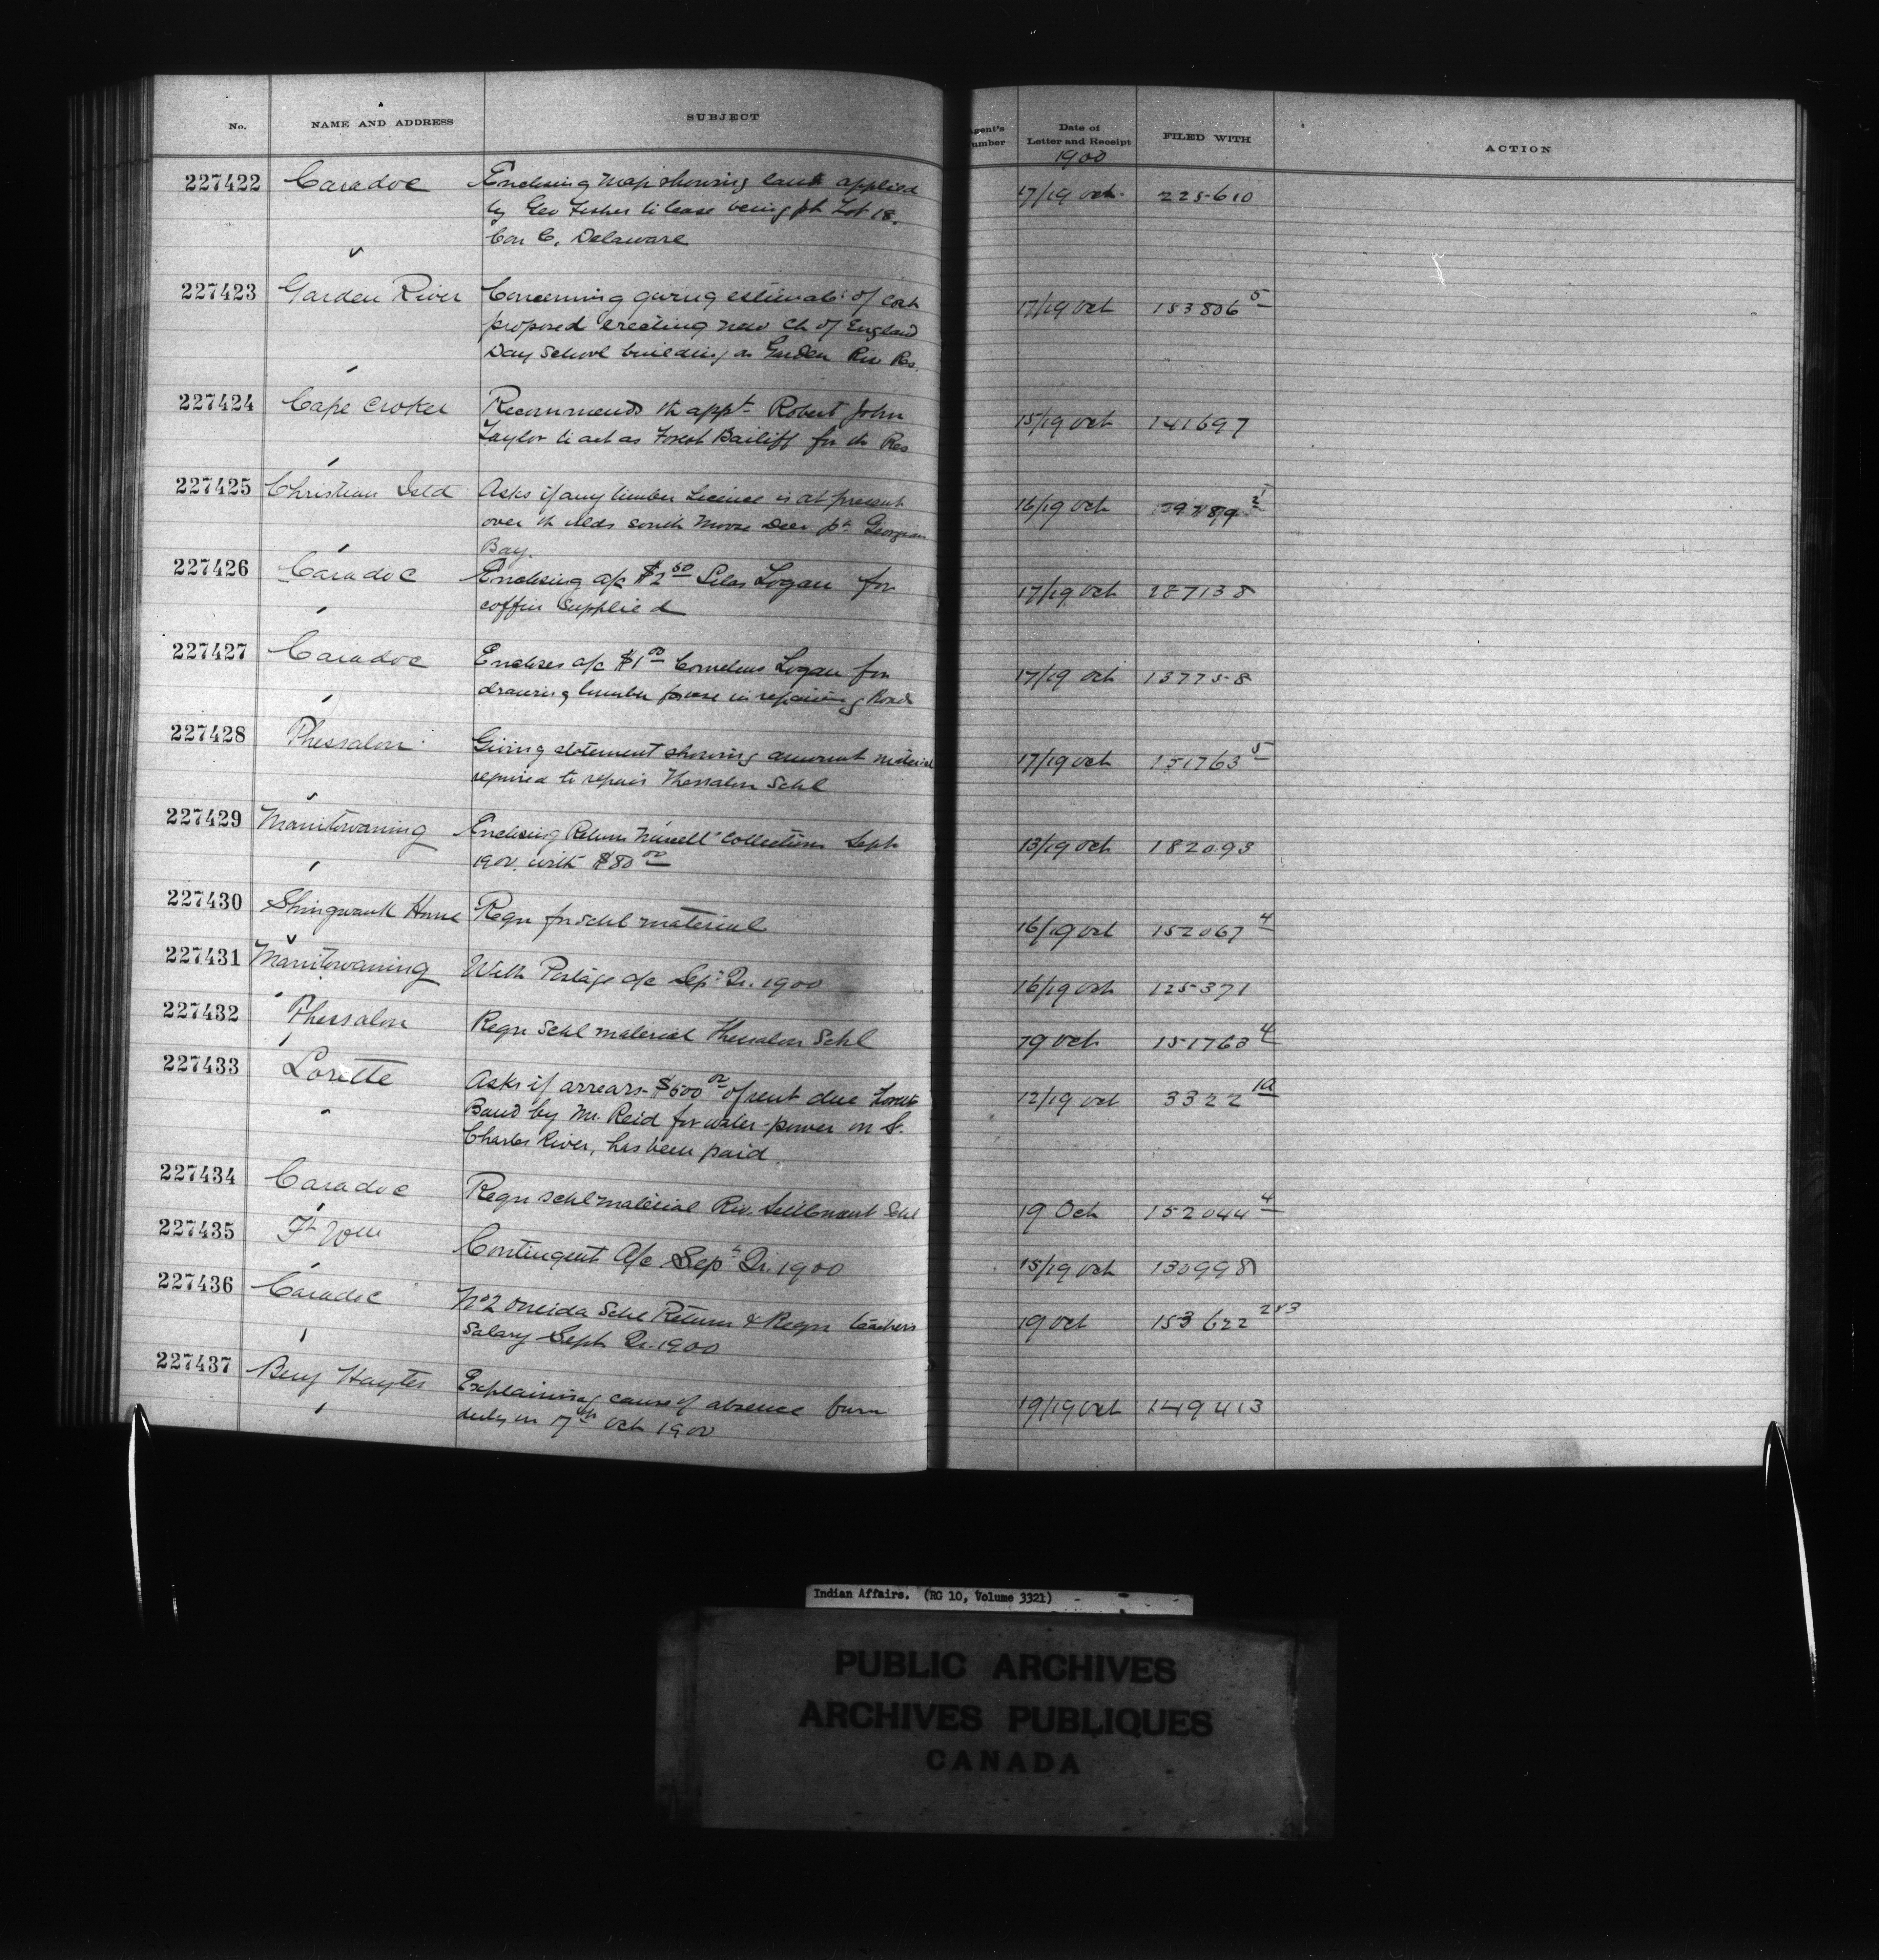 No. NAME AND ADDRESS SUBJECT Agent's Number Date of Letter and Receipt FILED WITH ACTION
1900
227422 Caradoc Enclosing map showing land applied 17/19 Oct. 225610
by Geo Fisher to lease being pt Lot 18.
Con C, Delaware
227423 Garden River Concerning giving estimate of cost 17/19 Oct 153806 5
proposed erecting new Ch of England
Day School building on Garden Riv Res.
227424 Cape Croker Recommends th appt Robert John 15/19 Oct 141697
Taylor to act as Forest Bailiff for th Res
227425 Christian Isld Asks if any timber Licence is at present 16/19 Oct
over th Islds south Moose Deer pt Georgian
Bay.
227426 Caradoc Enclosing a/c $2 50 Silas Logan for 17/19 Oct 187138
coffin supplied
227427 Caradoc Encloses a/c $1 00 Cornelius Logan for 17/19 Oct 137758
drawing lumber for use in repairing Road
227428 Thessalon Giving statement showing amount material 17/19 Oct 151763 5
required to repair Thessalon Schl
227429 Manitowaning Enclosing Return collections Sept 13/19 Oct 182093
1900. with $80 00
227430 Shingwauk Home Reqn for schl material 16/19 Oct 152067 4
227431 Manitowaning With Postage a/c Sept Qr. 1900 16/19 Oct 125371
227432 Thessalon Reqn Schl material Thessalon Schl 19 Oct 151763 4
227433 Lorette Asks if arrears $500 00 of rent due Lorette 12/19 Oct 3322 1a
Band by Mr. Reid for water-power on St.
Charles River, has been paid
227434 Caradoc Reqn schl material Riv. Settlement Schl 19 Oct 152044 4
227435 Ft Wm Contingent A/c Sept Qr. 1900 15/19 Oct 130998
227436 Caradoc No 2 Oneida Schl Return & Reqn teachers 19 Oct 153622 2&3
Salary Sept Qr. 1900
227437 Benj Hayter Explaining cause of absence from 19/19 Oct 149413
duty on 17th Oct 1900
Indian Affairs. (RG 10, Volume 3321)
PUBLIC ARCHIVES
ARCHIVES PUBLIQUES
CANADA